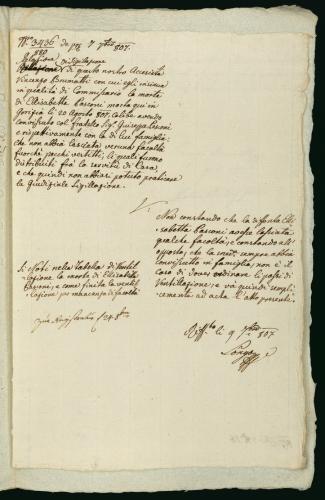 Nro 3436 de pr 7 7bre 807.
880
Relazione di Sigillazione
di questo nostro Accessista
Vincenzo Brumatti con cui egli insinua
in qualità di Commissario la morte
di Elisabetta Pavoni morta qui in
Gorizia li 20 Agosto 807. celibe avendo
convissuto col fratello Sigr Giuseppe Pavoni
e rispettivamente con di lui famiglia:
che non abbia lasciata veruna facoltà
fuorchè pochi vestiti, li quali furono
distribuiti fra la servitù di Casa,
e che quindi non abbiasi potuto praticare
la Giudiziale Sigillazione.
Non constando che la defonta Eli-
sabetta Pavoni avesse lasciata
qualche facoltà, e constando all'
opposto, che la med. sempre abbia
convissuto in famiglia, non è il
caso di dover ordinare li passi di
Ventillazione, e và quindi sempli-
cemente ad acta l'atto presente.
Si Noti nella Tabella di Ventil-
lazione la morte di Elisabetta
Pavoni, e come finita la ventil-
lazione per mancanza di facoltà
li 9 7bre 807.